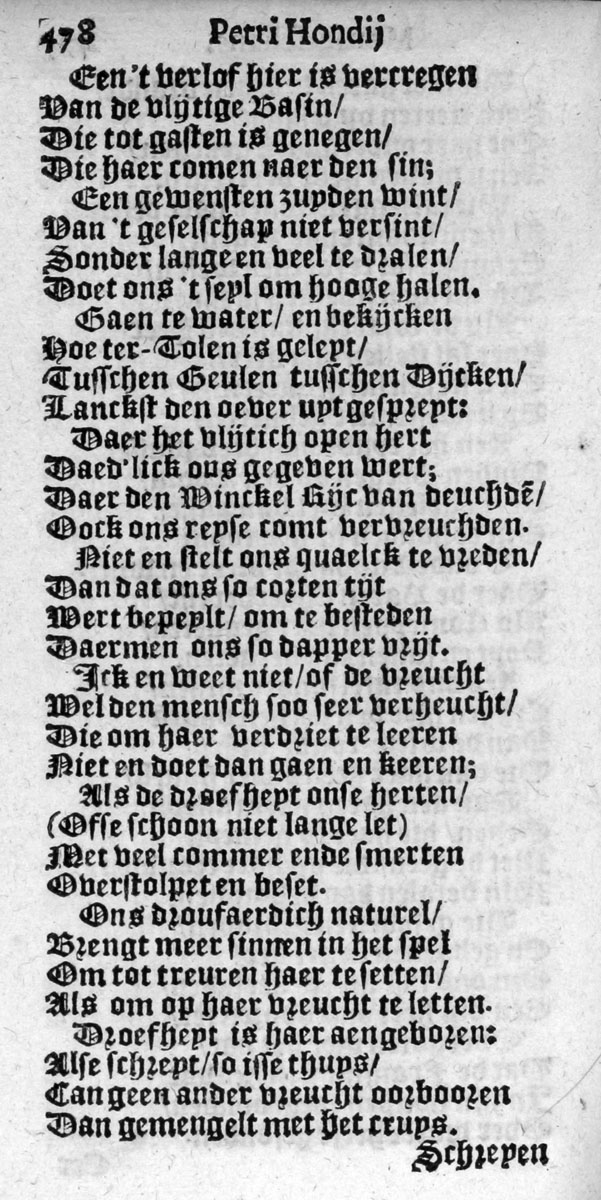 478 Petri Hondij
Een 't verlof hier is vercregen
Van de vlijtige Basin/
Die tot gasten is genegen/
Die haer comen naer den sin;
Een gewensten zuyden wint/
Van 't geselschap niet versint/
Sonder lange en veel te dralen/
Doet ons 't seyl om hooge halen.
Gaen te water/ en bekijcken
Hoe ter-Tolen is geleyt/
Tusschen Geulen tusschen Dijcken/
Lanckst den oever uyt gespreyt:
Daer het vlijtich open hert
Daed'lick ons gegeven wert;
Daer den Winckel Ryc van deuchdē/
Oock ons reyse comt vervreuchden.
Niet en stelt ons quaelck te vreden/
Dan dat ons so corten tijt
Wert bepeylt/ om te besteden
Daermen ons so dapper vrijt.
Ick en weet niet/of de vreucht
Wel den mensch soo seer verheucht/
Die om haer verdriet te leeren
Niet en doet dan gaen en keeren;
Als de droefheyt onse herten/
(Ofse schoon niet lange let)
Met veel commer ende smerten
Overstolpet en beset.
Ons droufaerdich naturel/
Brengt meer sinnen in het spel
Om tot treuren haer te setten/
Als om op haer vreucht te letten.
Droefheyt is haer aengeboren:
Alse schreyt/so isse thuys/
Can geen ander vreucht oorbooren
Dan gemengelt met het cruys.
Schreyen